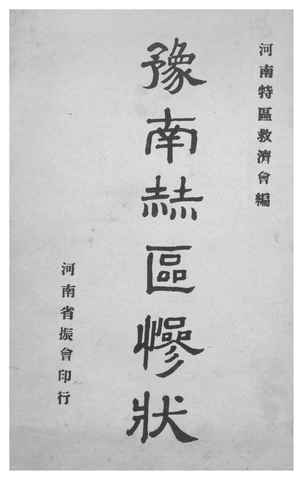 河南特區救濟會編
豫南赫區慘狀
河南省振會印行